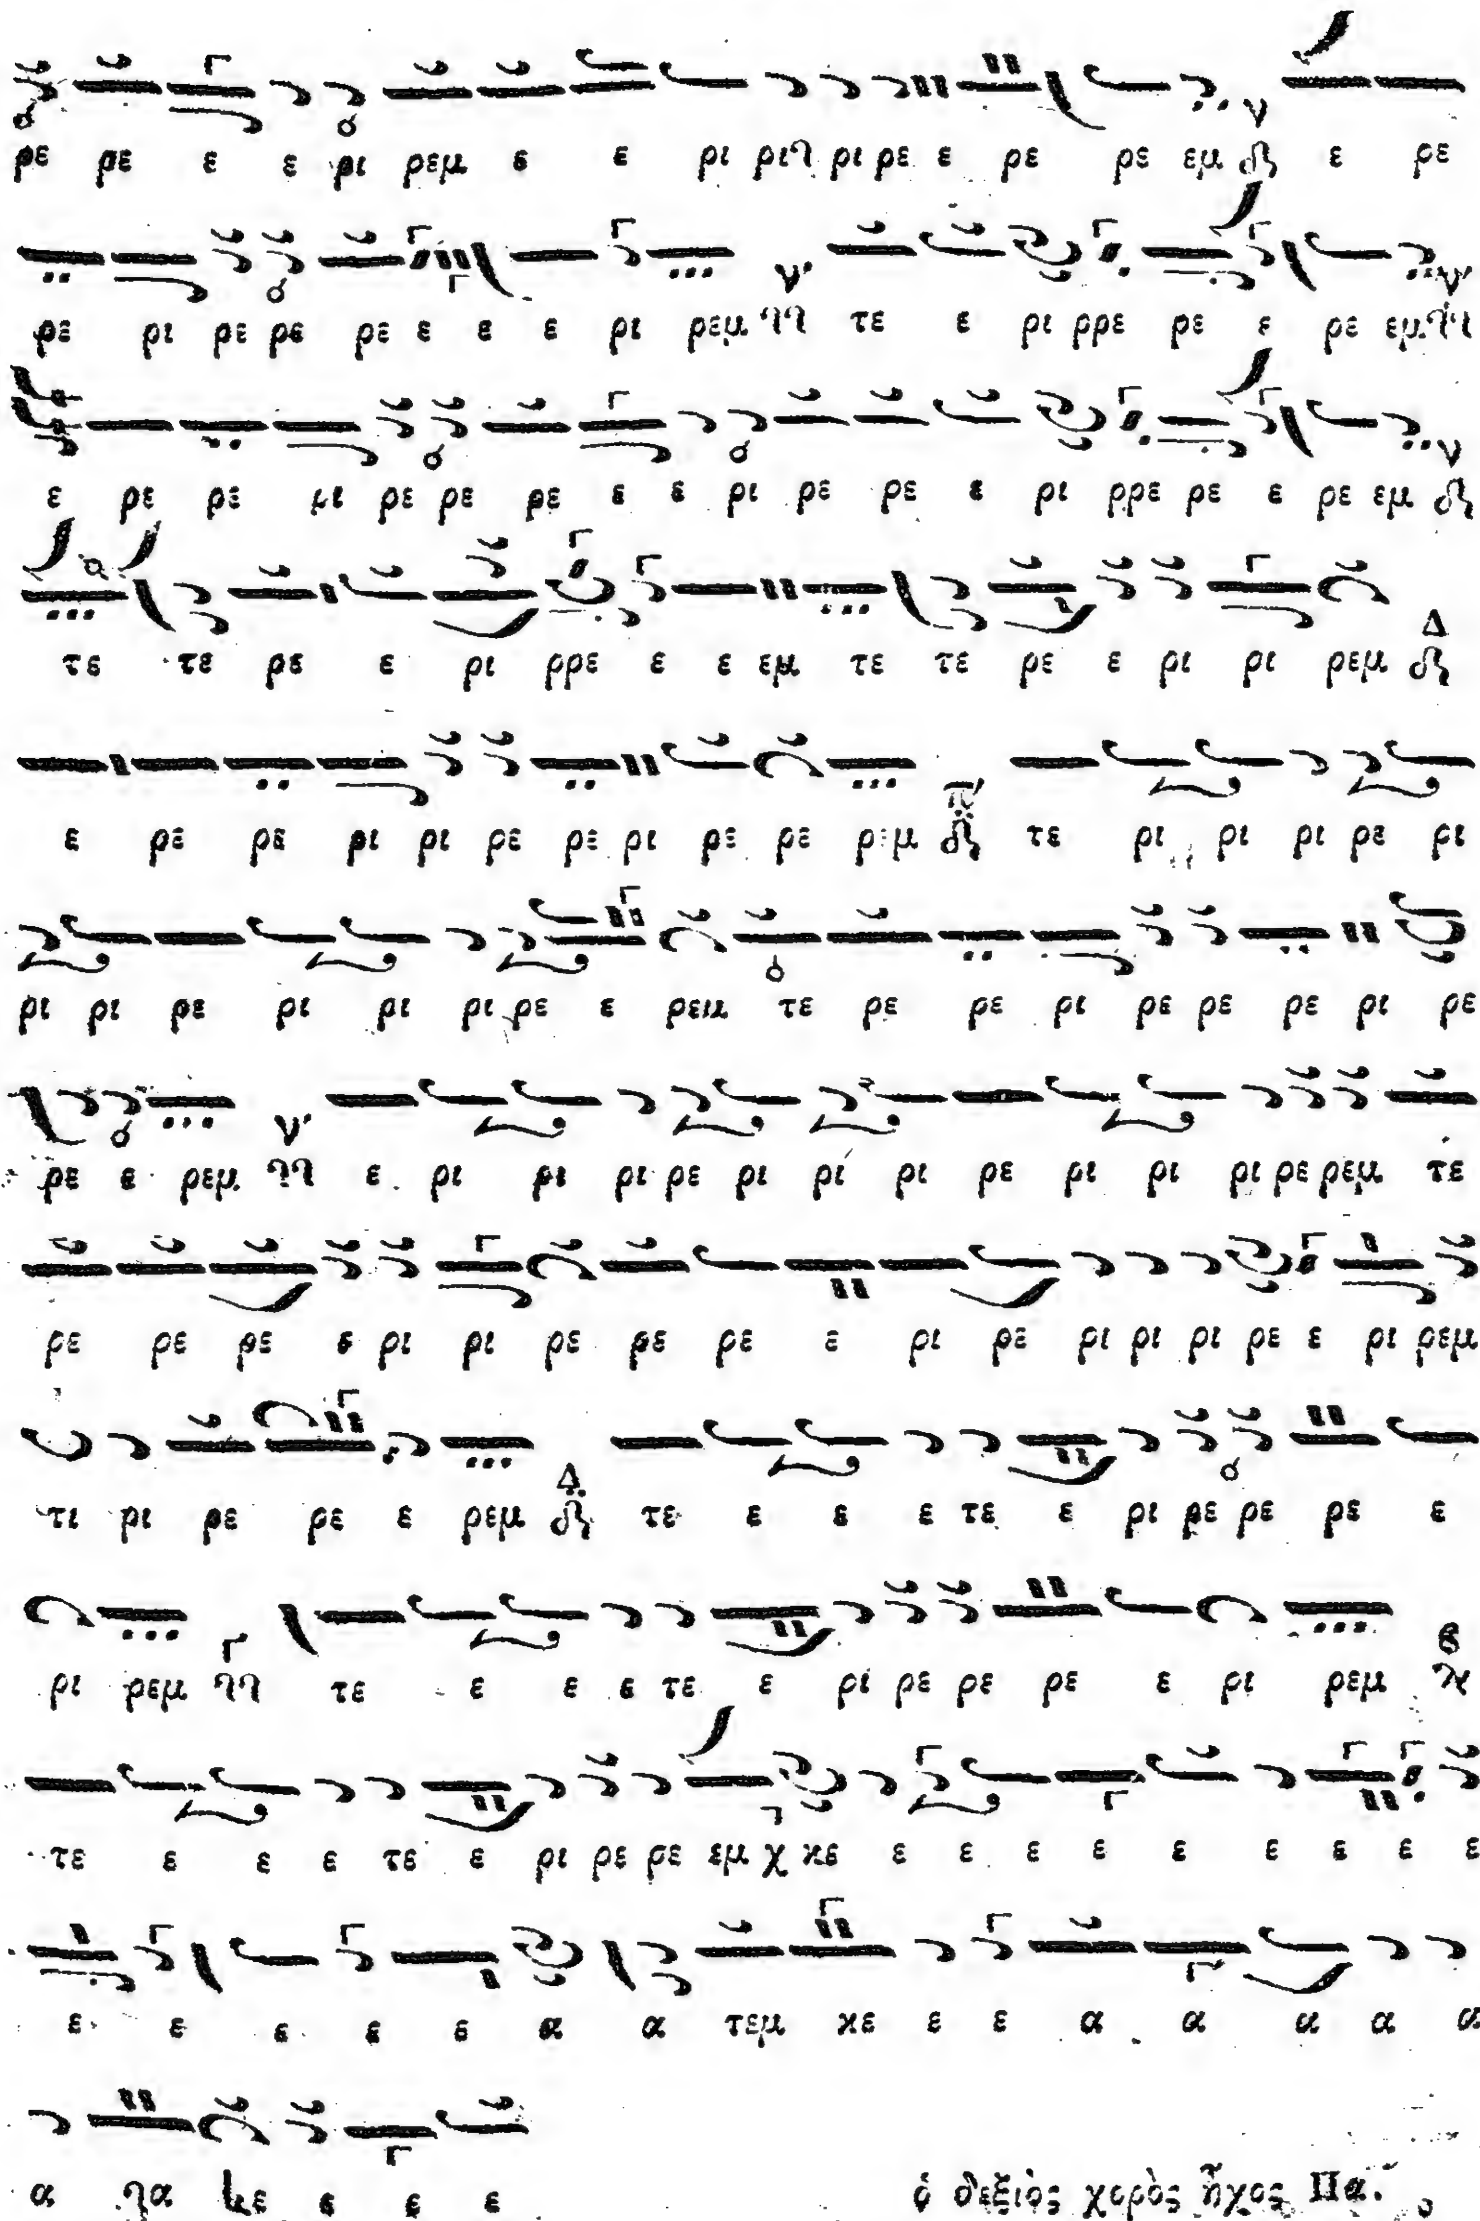 ρε ρε ε ε ρι ρεμ ε ε ρι ριη ρι ρε ε ρε ρε εμ ε ρε
ρε ρι ρε ρε ρε ε ε ε ρι ρεμ τε ε ρι ρρε ρε ε ρε εμ
ε ρε ρε ρι ρε ρε ρε ε ε ρι ρε ρε ε ρι ρρε ρε ε ρε εμ
τε τε ρε ε ρι ρρε ε ε εμ τε τε ρε ε ρι ρι ρεμ
ε ρε ρε ρι ρι ρε ρε ρι ρε ρε ρεμ τε ρι ρι ρι ρε ρι
ρι ρι ρε ρι ρι ρι ρε ε ρεμ τε ρε ρε ρι ρε ρε ρε ρι ρε
ρε ε ρεμ ε ρι ρι ρι ρε ρι ρι ρι ρε ρι ρι ρι ρε ρεμ τε
ρε ρε ρε ε ρι ρι ρε ρε ρε ε ρι ρε ρι ρι ρι ρε ε ρι ρεμ
τι ρι ρε ρε ε ρεμ τε ε ε ε τε ε ρι ρε ρε ρε ε
ρι ρεμ τε ε ε ε τε ε ρι ρε ρε ρε ε ρι ρεμ
τε ε ε ε τε ε ρι ρε ρε εμ χ κε ε ε ε ε ε ε ε ε ε
ε ε ε ε ε α α τεμ κε ε ε α α α α α
α ηα κε ε ε ε ὁ δεξιὸς χορὸς ἦχος Πα.